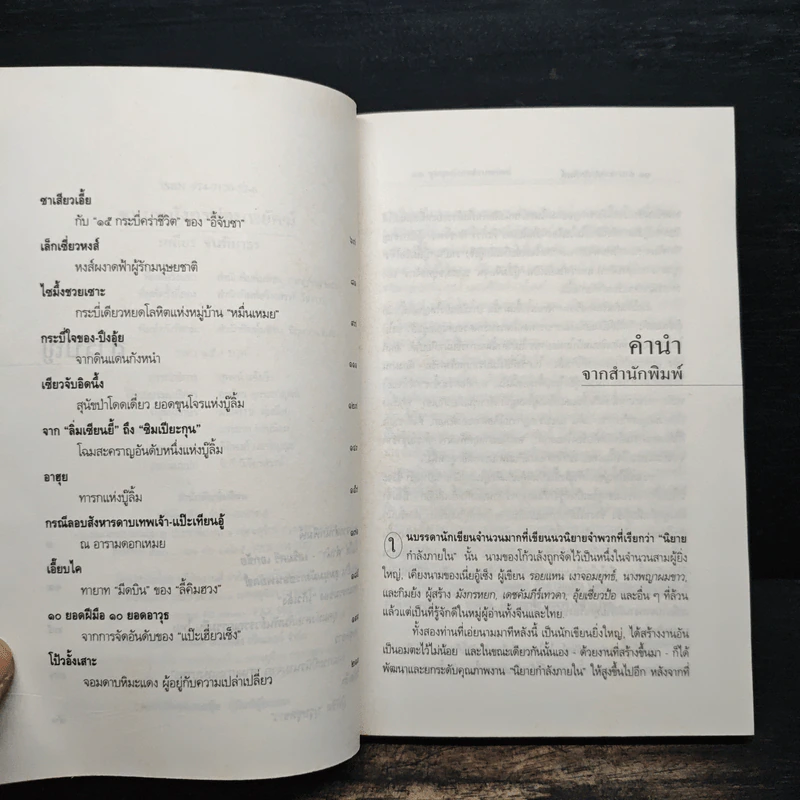 ซาเสียวเอี้ย
กับ “๑๕ กระบี่คร่าชีวิต” ของ “อี้จับซา”
เล็กเซี่ยวหงส์
หงส์ผงาดฟ้าผู้รักมนุษยชาติ
ไซมึ้งชวยเซาะ
กระบี่เดียวหยดโลหิตแห่งหมู่บ้าน “หมื่นเหมย”
กระบี่ใจของ-ปึงอุ้ย
จากดินแดนกังหนำ
เซียวจับอิดนึ้ง
สุนัขป่าโดดเดี่ยว ยอดขุนโจรแห่งบู๊ลิ้ม
จาก “ลิ่มเซียนยี้” ถึง “ซิมเปียะกุน”
โฉมสะคราญอันดับหนึ่งแห่งบู๊ลิ้ม
อาฮุย
ทารกแห่งบู๊ลิ้ม
กรณีลอบสังหารดาบเทพเจ้า-แป๊ะเทียนอู้
ณ อารามดอกเหมย
เอี๊ยบไค
ทายาท “มีดบิน” ของ “ลี้คิมฮวง”
๑๐ ยอดฝีมือ ๑๐ ยอดอาวุธ
จากการจัดอันดับของ “แป๊ะเฮี่ยวเซ็ง”
โป้วอั้งเสาะ
จอมดาบหิมะแดง ผู้อยู่กับความเปล่าเปลี่ยว
คำนำ
จากสำนักพิมพ์
ในบรรดานักเขียนจำนวนมากที่เขียนนวนิยายจำพวกที่เรียกว่า “นิยาย
กำลังภายใน” นั้น นามของโก้วเล้งถูกจัดไว้เป็นหนึ่งในจำนวนสามผู้ยิ่ง
ใหญ่, เคียงนามของเนี่ยอู้เซ็ง ผู้เขียน รอยแหน เงาจอมยุทธ์, นางพญาผมขาว,
และกิมย้ง ผู้สร้าง มังกรหยก, เดชคัมภีร์เทวดา, อุ้ยเซี่ยวป้อ และอื่น ๆ ที่ล้วน
แล้วแต่เป็นที่รู้จักดีในหมู่ผู้อ่านทั้งจีนและไทย.
ทั้งสองท่านที่เอ่ยนามมาทีหลังนี้ เป็นนักเขียนยิ่งใหญ่, ได้สร้างงานอัน
เป็นอมตะไว้ไม่น้อย และในขณะเดียวกันนั้นเอง - ด้วยงานที่สร้างขึ้นมา - ก็ได้
พัฒนาและยกระดับคุณภาพงาน “นิยายกำลังภายใน” ให้สูงขึ้นไปอีก หลังจากที่